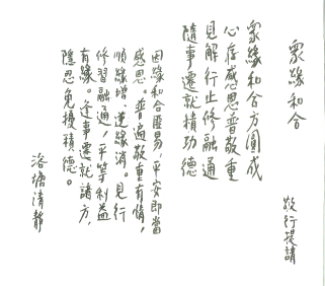 眾緣和合
敬行提請
眾緣和合方圓成
心存感恩普敬重
見解行止修融通
隨事遷就積功德
因緣和合匪易,平安即當
感恩。普遍敬重有情,
順緣增、逆緣消。見行
修習融通,平等利益
有緣。逢事遷就諸方,
隱忍免擾積德。
洛塘清靜